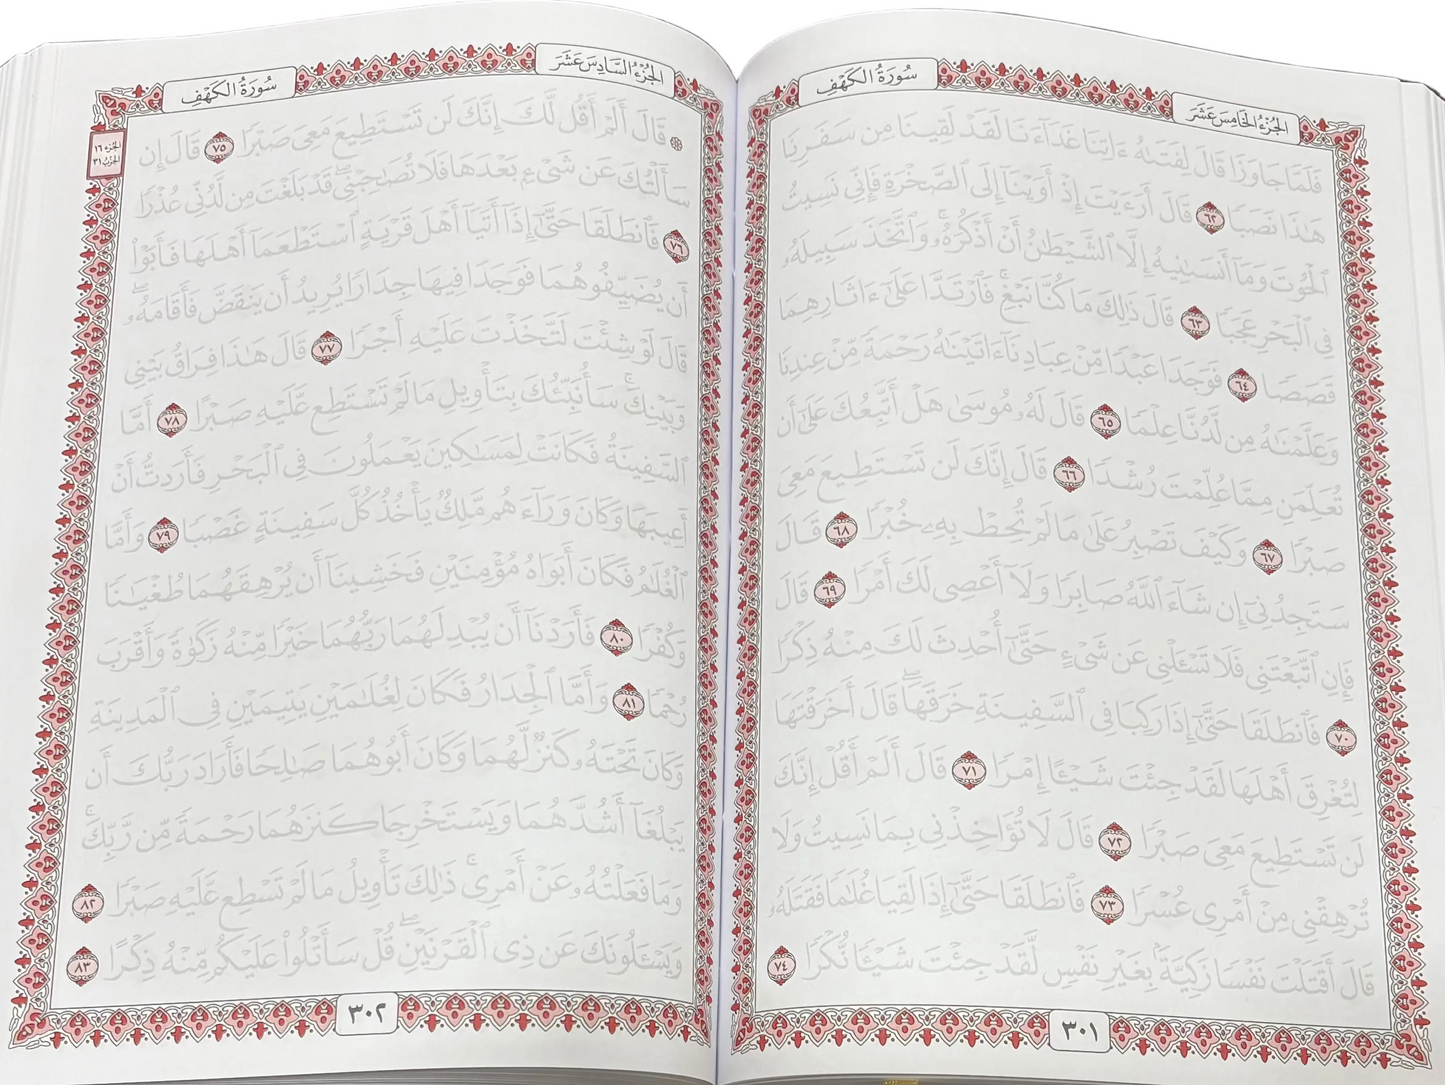 الجُزْءُ الخَامِسَ عَشَرَ
سُورَةُ الكَهْفِ
فَلَمَّا جَاوَزَا قَالَ لِفَتَىٰهُ ءَاتِنَا غَدَآءَنَا لَقَدْ لَقِينَا مِن سَفَرِنَا
هَٰذَا نَصَبًا ٦٢ قَالَ أَرَءَيْتَ إِذْ أَوَيْنَآ إِلَى ٱلصَّخْرَةِ فَإِنِّي نَسِيتُ
ٱلْحُوتَ وَمَآ أَنسَىٰنِيهُ إِلَّا ٱلشَّيْطَٰنُ أَنْ أَذْكُرَهُۥۚ وَٱتَّخَذَ سَبِيلَهُۥ
فِي ٱلْبَحْرِ عَجَبًا ٦٣ قَالَ ذَٰلِكَ مَا كُنَّا نَبْغِۚ فَٱرْتَدَّا عَلَىٰٓ ءَاثَارِهِمَا
قَصَصًا ٦٤ فَوَجَدَا عَبْدًا مِّنْ عِبَادِنَآ ءَاتَيْنَٰهُ رَحْمَةً مِّنْ عِندِنَا
وَعَلَّمْنَٰهُ مِن لَّدُنَّا عِلْمًا ٦٥ قَالَ لَهُۥ مُوسَىٰ هَلْ أَتَّبِعُكَ عَلَىٰٓ أَن
تُعَلِّمَنِ مِمَّا عُلِّمْتَ رُشْدًا ٦٦ قَالَ إِنَّكَ لَن تَسْتَطِيعَ مَعِيَ
صَبْرًا ٦٧ وَكَيْفَ تَصْبِرُ عَلَىٰ مَا لَمْ تُحِطْ بِهِۦ خُبْرًا ٦٨ قَالَ
سَتَجِدُنِيٓ إِن شَآءَ ٱللَّهُ صَابِرًا وَلَآ أَعْصِي لَكَ أَمْرًا ٦٩ قَالَ
فَإِنِ ٱتَّبَعْتَنِي فَلَا تَسْـَٔلْنِي عَن شَيْءٍ حَتَّىٰٓ أُحْدِثَ لَكَ مِنْهُ ذِكْرًا
٧٠ فَٱنطَلَقَا حَتَّىٰٓ إِذَا رَكِبَا فِي ٱلسَّفِينَةِ خَرَقَهَاۖ قَالَ أَخَرَقْتَهَا
لِتُغْرِقَ أَهْلَهَا لَقَدْ جِئْتَ شَيْـًٔا إِمْرًا ٧١ قَالَ أَلَمْ أَقُلْ إِنَّكَ
لَن تَسْتَطِيعَ مَعِيَ صَبْرًا ٧٢ قَالَ لَا تُؤَاخِذْنِي بِمَا نَسِيتُ وَلَا
تُرْهِقْنِي مِنْ أَمْرِي عُسْرًا ٧٣ فَٱنطَلَقَا حَتَّىٰٓ إِذَا لَقِيَا غُلَٰمًا فَقَتَلَهُۥ
قَالَ أَقَتَلْتَ نَفْسًا زَكِيَّةَۢ بِغَيْرِ نَفْسٍ لَّقَدْ جِئْتَ شَيْـًٔا نُّكْرًا ٧٤
٣٠١
الجُزْءُ السَّادِسَ عَشَرَ
سُورَةُ الكَهْفِ
الجزء ١٦
الحزب ٣١
۞ قَالَ أَلَمْ أَقُل لَّكَ إِنَّكَ لَن تَسْتَطِيعَ مَعِيَ صَبْرًا ٧٥ قَالَ إِن
سَأَلْتُكَ عَن شَيْءِۭ بَعْدَهَا فَلَا تُصَٰحِبْنِيۖ قَدْ بَلَغْتَ مِن لَّدُنِّي عُذْرًا
٧٦ فَٱنطَلَقَا حَتَّىٰٓ إِذَآ أَتَيَآ أَهْلَ قَرْيَةٍ ٱسْتَطْعَمَآ أَهْلَهَا فَأَبَوْا۟
أَن يُضَيِّفُوهُمَا فَوَجَدَا فِيهَا جِدَارًا يُرِيدُ أَن يَنقَضَّ فَأَقَامَهُۥۖ
قَالَ لَوْ شِئْتَ لَتَّخَذْتَ عَلَيْهِ أَجْرًا ٧٧ قَالَ هَٰذَا فِرَاقُ بَيْنِي
وَبَيْنِكَۚ سَأُنَبِّئُكَ بِتَأْوِيلِ مَا لَمْ تَسْتَطِع عَّلَيْهِ صَبْرًا ٧٨ أَمَّا
ٱلسَّفِينَةُ فَكَانَتْ لِمَسَٰكِينَ يَعْمَلُونَ فِي ٱلْبَحْرِ فَأَرَدتُّ أَنْ
أَعِيبَهَا وَكَانَ وَرَآءَهُم مَّلِكٌ يَأْخُذُ كُلَّ سَفِينَةٍ غَصْبًا ٧٩ وَأَمَّا
ٱلْغُلَٰمُ فَكَانَ أَبَوَاهُ مُؤْمِنَيْنِ فَخَشِينَآ أَن يُرْهِقَهُمَا طُغْيَٰنًا
وَكُفْرًا ٨٠ فَأَرَدْنَآ أَن يُبْدِلَهُمَا رَبُّهُمَا خَيْرًا مِّنْهُ زَكَوٰةً وَأَقْرَبَ
رُحْمًا ٨١ وَأَمَّا ٱلْجِدَارُ فَكَانَ لِغُلَٰمَيْنِ يَتِيمَيْنِ فِي ٱلْمَدِينَةِ
وَكَانَ تَحْتَهُۥ كَنزٌ لَّهُمَا وَكَانَ أَبُوهُمَا صَٰلِحًا فَأَرَادَ رَبُّكَ أَن
يَبْلُغَآ أَشُدَّهُمَا وَيَسْتَخْرِجَا كَنزَهُمَا رَحْمَةً مِّن رَّبِّكَۚ
وَمَا فَعَلْتُهُۥ عَنْ أَمْرِيۚ ذَٰلِكَ تَأْوِيلُ مَا لَمْ تَسْطِع عَّلَيْهِ صَبْرًا ٨٢
وَيَسْـَٔلُونَكَ عَن ذِي ٱلْقَرْنَيْنِۖ قُلْ سَأَتْلُوا۟ عَلَيْكُم مِّنْهُ ذِكْرًا ٨٣
٣٠٢